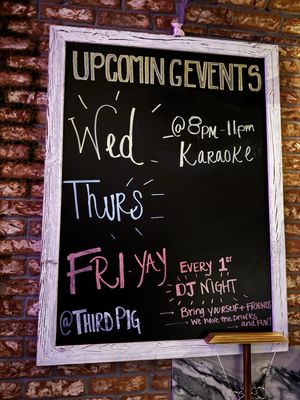 UPCOMING EVENTS
Wed @ 8PM-11PM
KARAOKE
THURS
FRI-YAY EVERY 1ST
DJ NIGHT
@THIRDPIG
- BRING YOURSELF + FRIENDS
- WE HAVE THE DRINKS
- AND FUN!